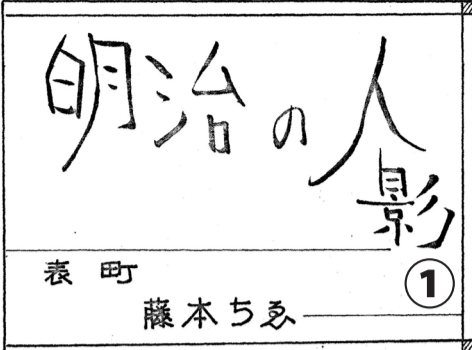 明治の人影
①
表町
藤本ちゑ